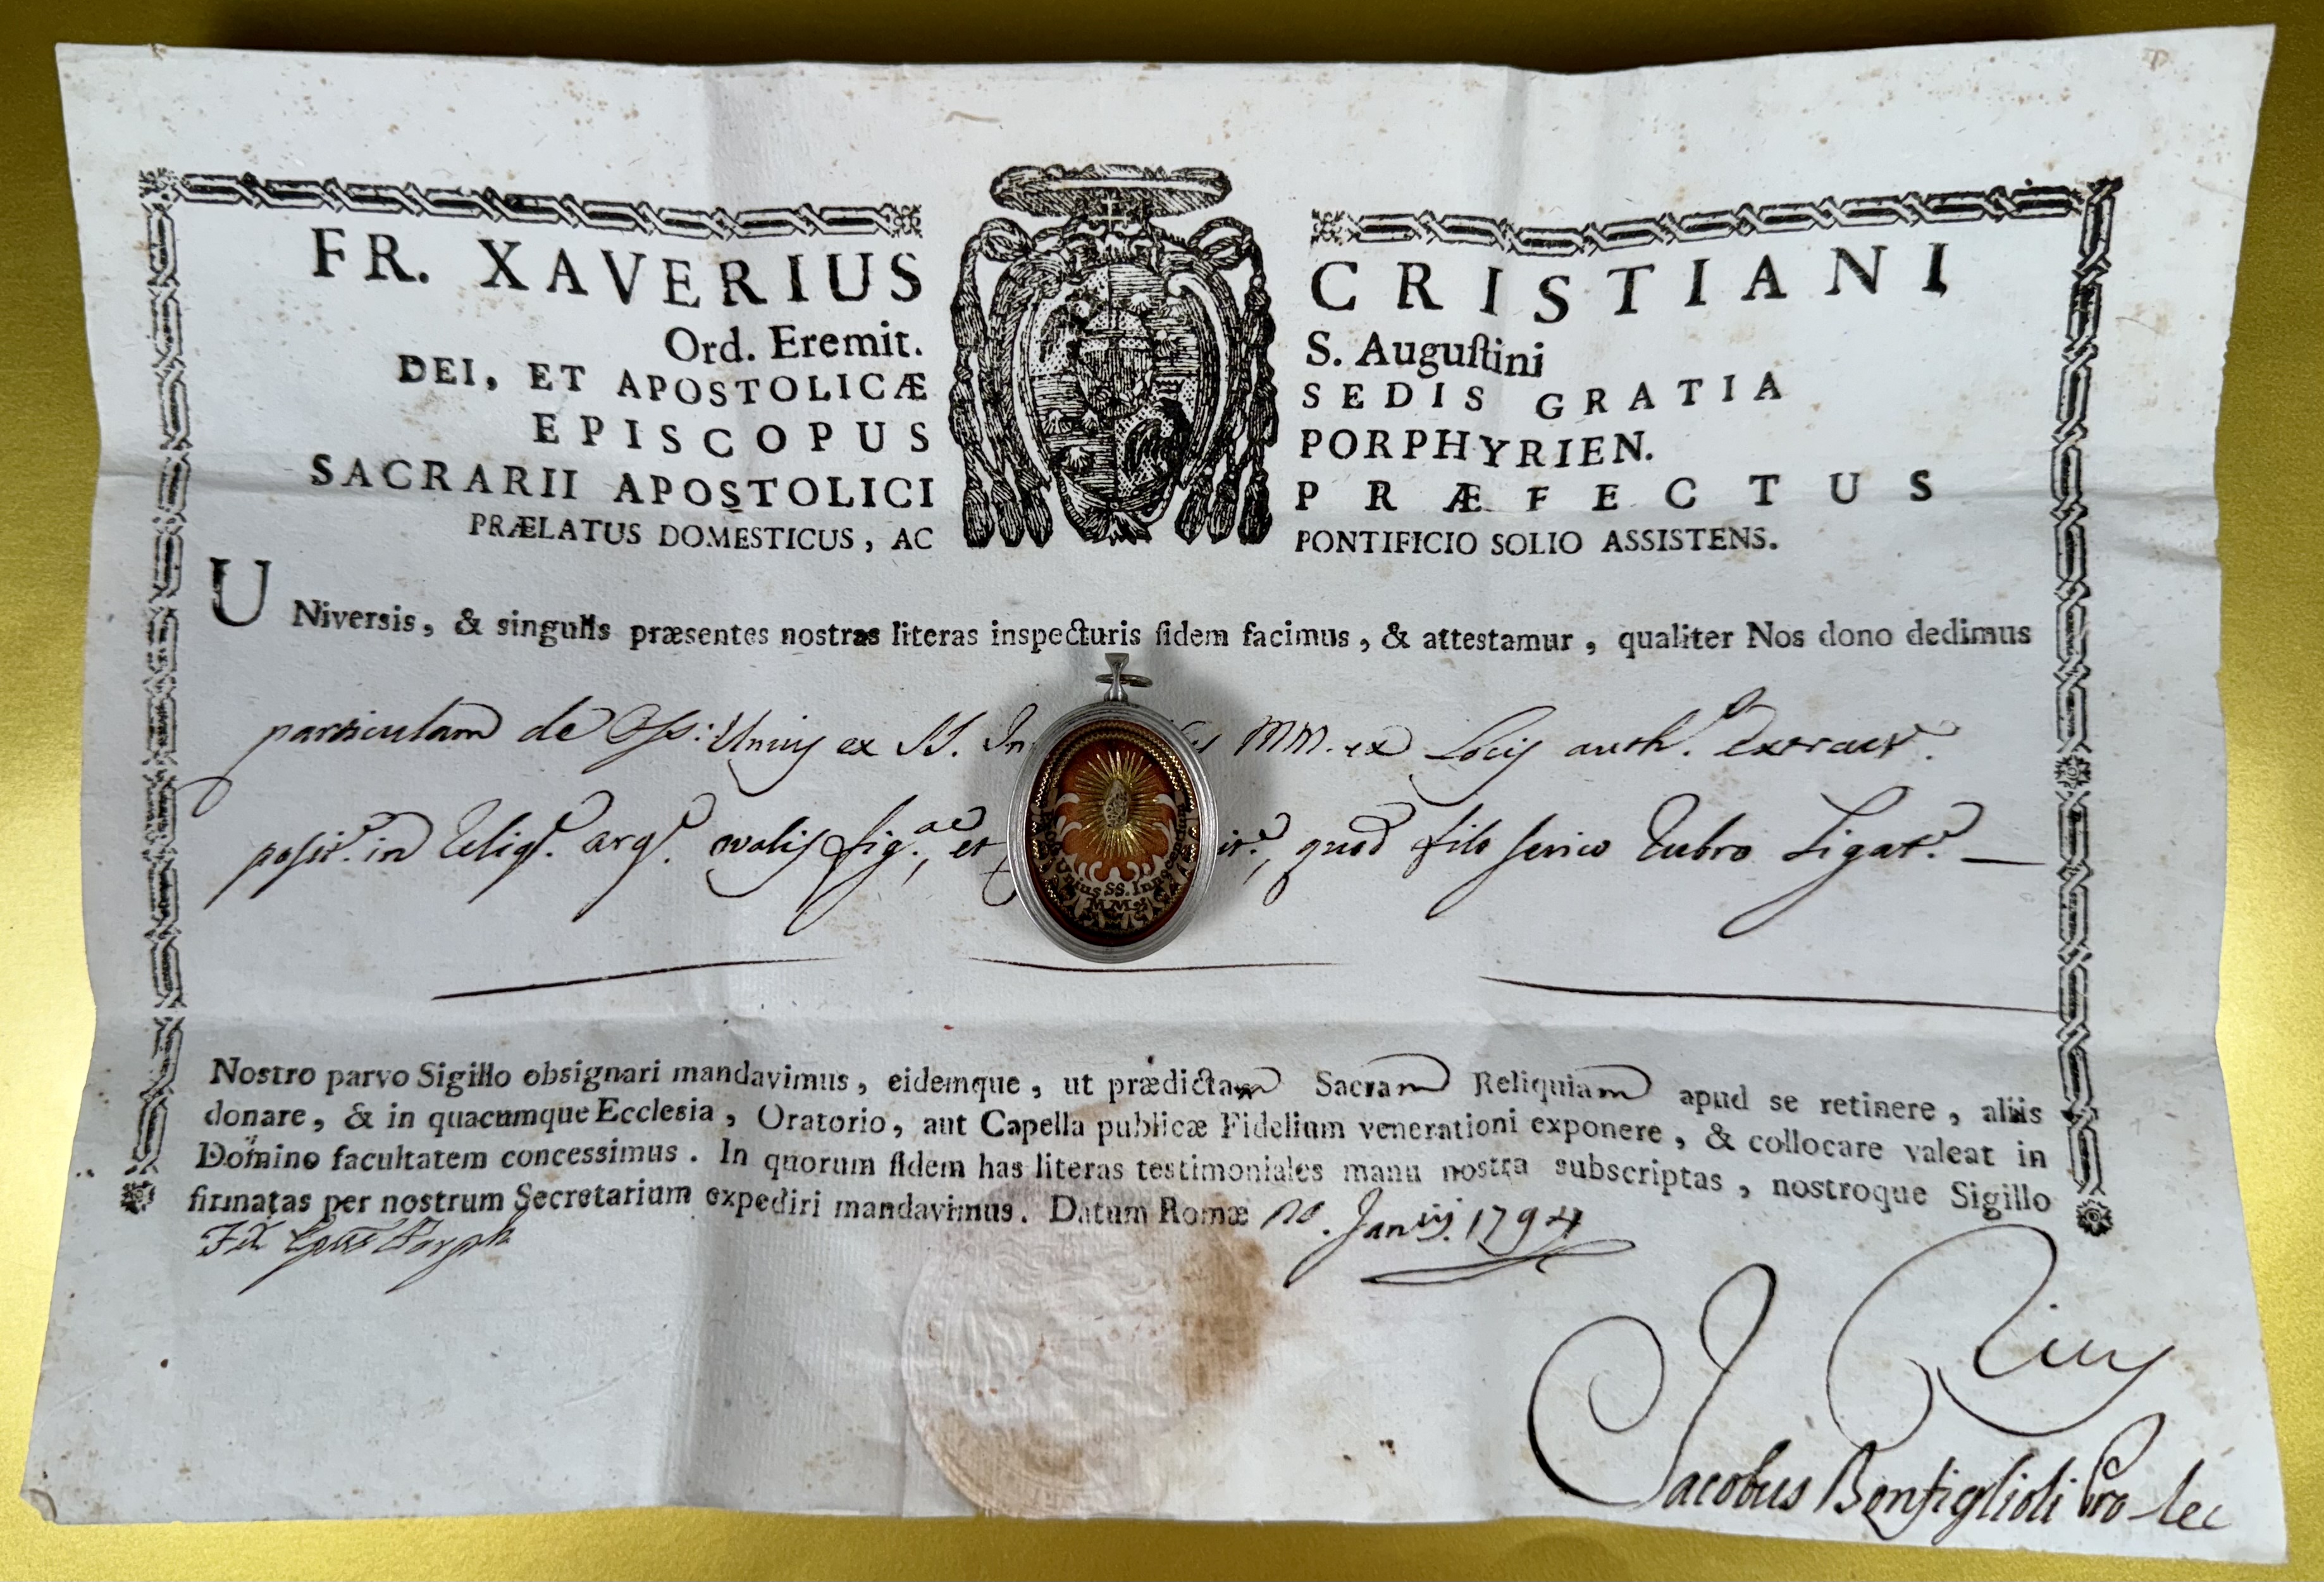 FR. XAVERIUS CRISTIANI
Ord. Eremit. S. Auguſtini
DEI, ET APOSTOLICÆ SEDIS GRATIA
EPISCOPUS PORPHYRIEN.
SACRARII APOSTOLICI PRÆFECTUS
PRÆLATUS DOMESTICUS, AC PONTIFICIO SOLIO ASSISTENS.
UNiversis, & singulis præsentes nostras literas inspecturis fidem facimus, & attestamur, qualiter Nos dono dedimus
particulam de Oss: Unius ex SS. In MM. ex Locis auth. extract.
posit. in Reliq. arg. ovalis fig.ae, et quod filo serico rubro Ligat.
Unius SS. Innocentium
M.M.
Nostro parvo Sigillo obsignari mandavimus, eidemque, ut prædictam Sacram Reliquiam apud se retinere, aliis
donare, & in quacumque Ecclesia, Oratorio, aut Capella publicæ Fidelium venerationi exponere, & collocare valeat in
Domino facultatem concessimus. In quorum fidem has literas testimoniales manu nostra subscriptas, nostroque Sigillo
firmatas per nostrum Secretarium expediri mandavimus. Datum Romæ Janrij. 1794
Jacobus Bonfiglioli Pro Sec